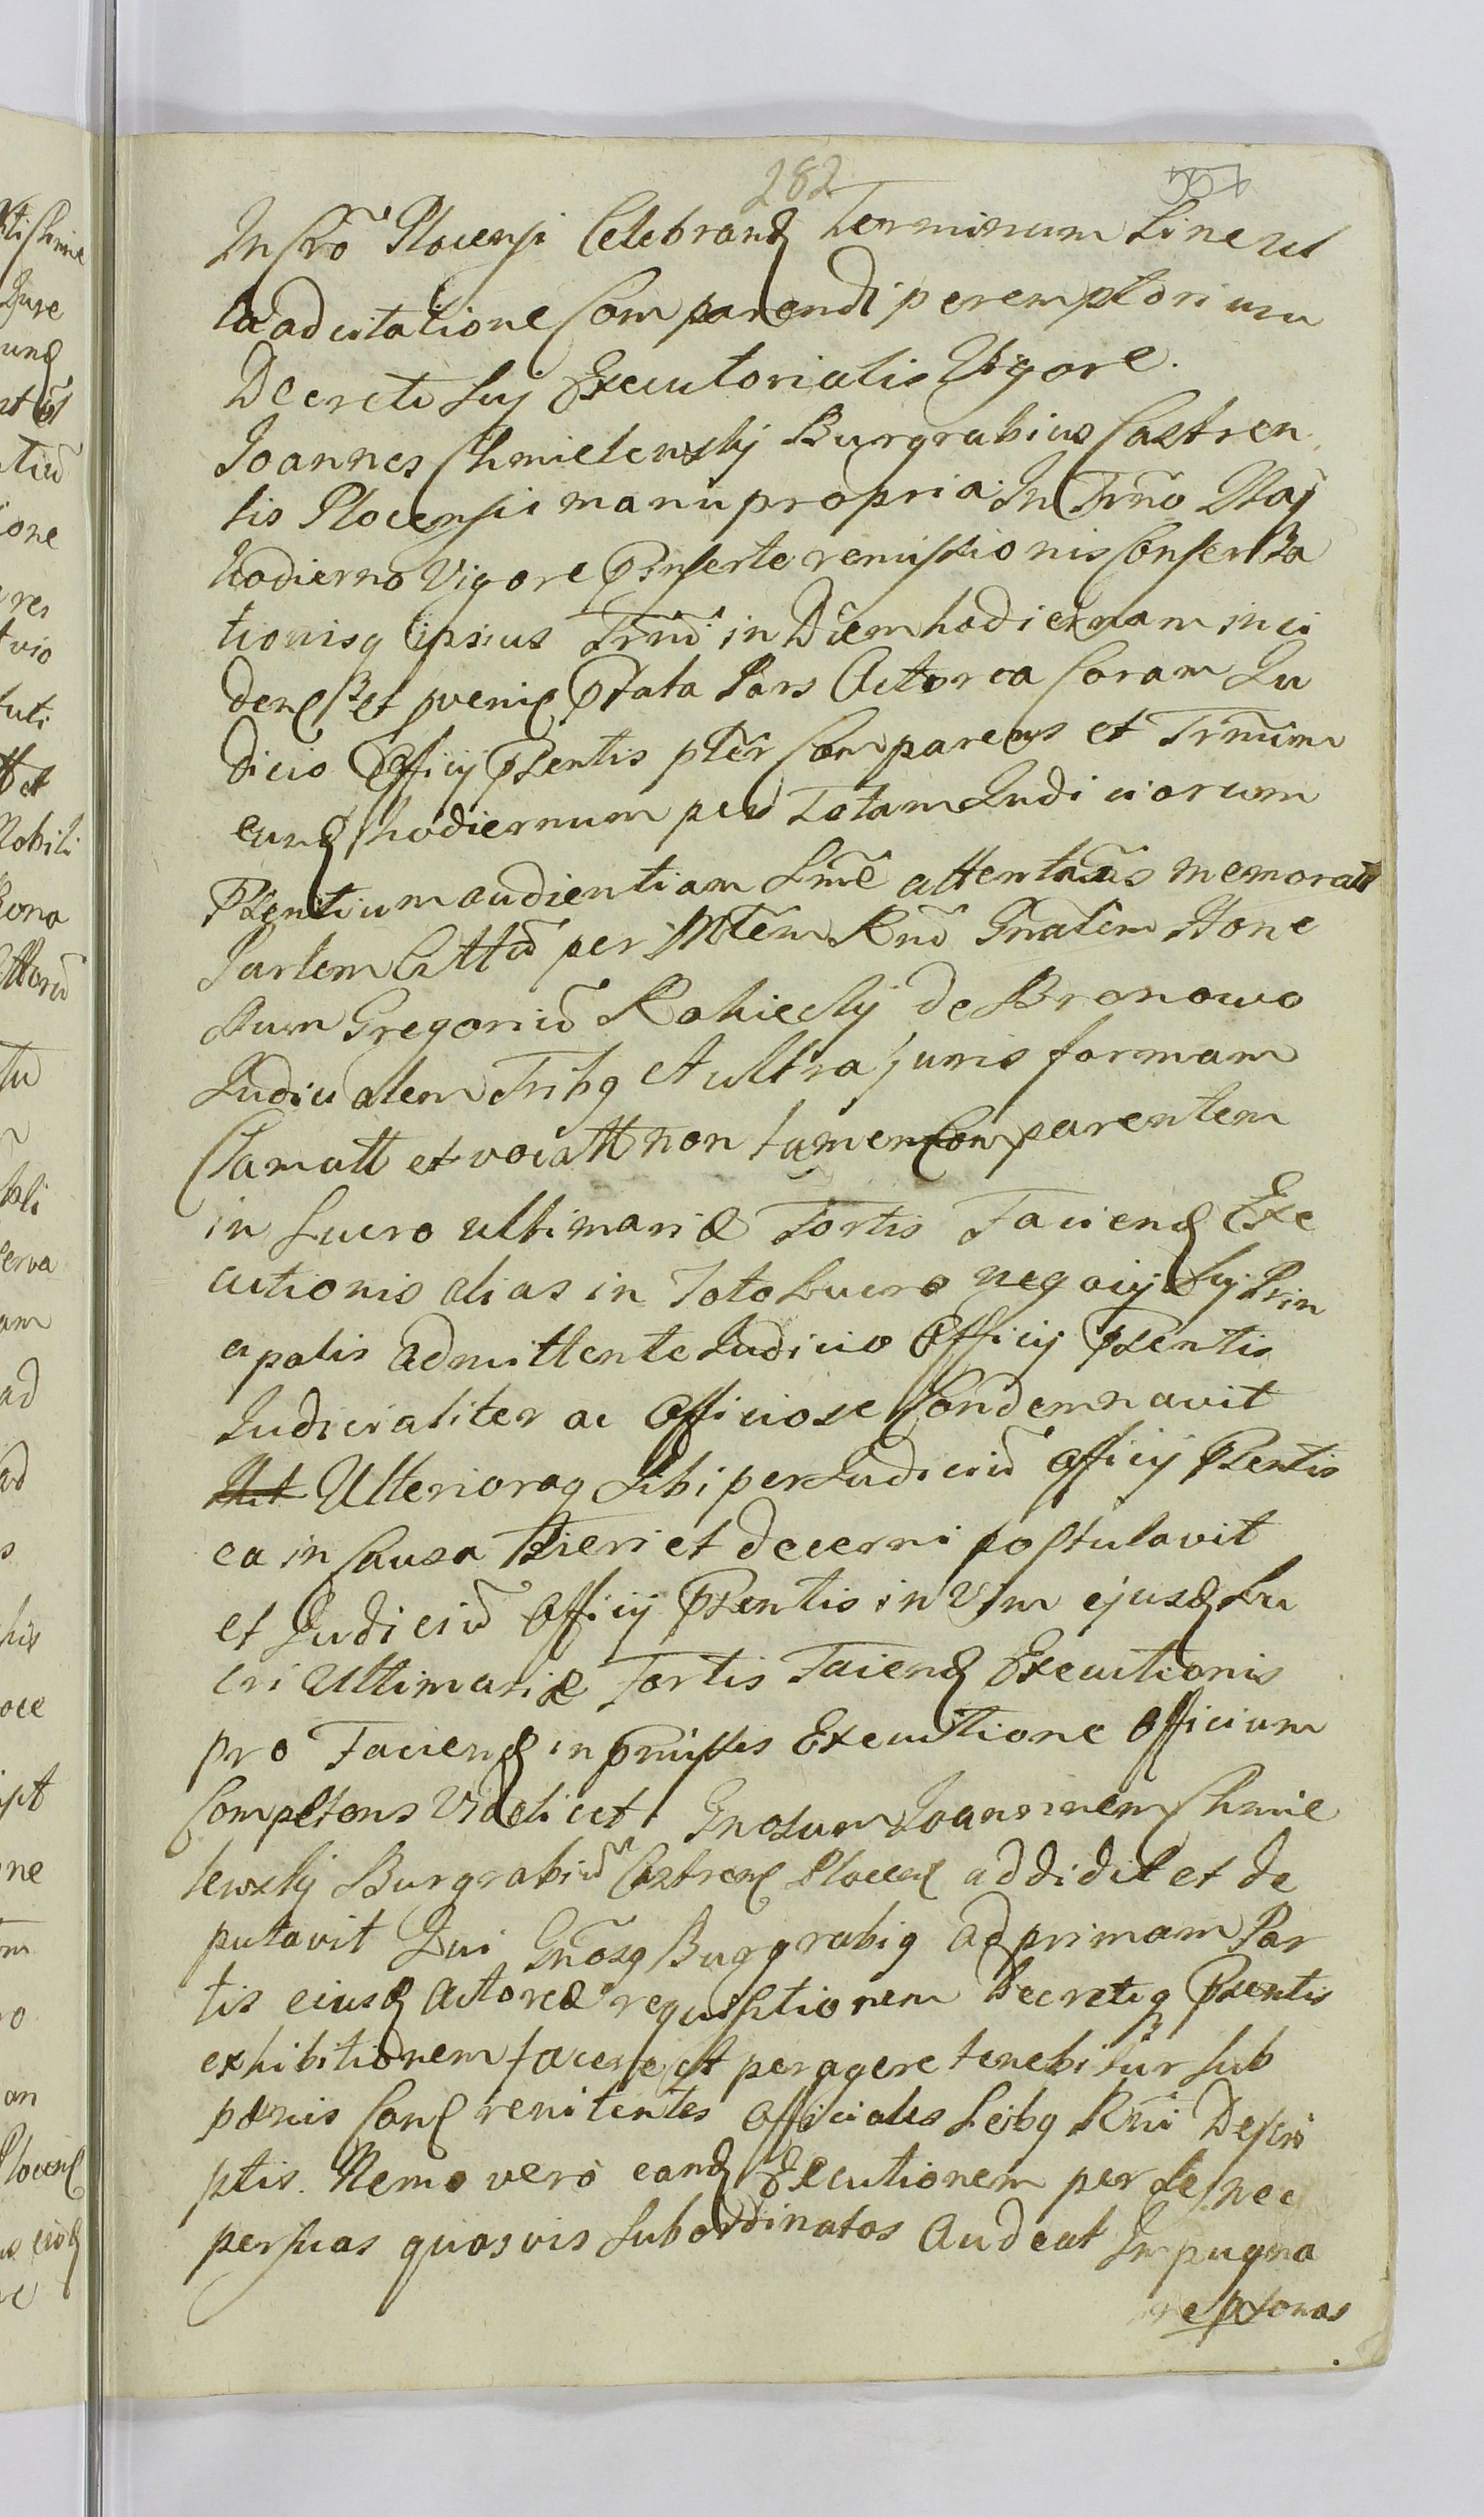 282
In Cro Plocensi Celebrand Terminum Sine ul
la adcitatione Comparendi peremptorium
Decreti sui Executorialis Vigore.
Joannes Chmielewskij Burgrabius Castren
sis Plocensis manu propria. In Trno Itaq
hodierno Vigore Pinserte remissionis Conserva
tionisq ipsius Trni in Diem hodiernam inci
den et pveni Pfata Pars Actorea Coram Ju
dicio Officij Psentis pler Comparens et Trnum
eund hodiernum per Totam Judiciorum
Psentium audientiam Sme attentans memoratt
Partem Cittu per Mtem Rnu Gnalem Hone
stum Gregoriu Rokickij de Bronowo
Judicialem Tribq et ultra juris formam
Clamatt et vocatt non tamen Comparentem
in Lucro ultimariæ Fortis Faciend Exe
cutionis alias in Toto Lucro negocij sui Prin
cipalis admittente Judicio Officij Psentis
Judicialiter ac Officiose Condemnavit
Ulterioraq Sibi per Judiciu Officij Psentis
ea in Causa Fieri et decerni postulavit
et Judiciu Officij Psentis in Vim ejusd Lu
cri Ultimariæ Fortis Faciend Executionis
pro Faciend in pmissis Executione Officium
Competens Videlicet Gnosum Joannem Chmie
lewskij Burgrabium Castren Plocen addidit et de
putavit Qui Gnosq Burgrabiq ad primam Par
tis eiusd Actoreæ requisitionem Decretiq Psentis
exhibitionem facere et peragere tenebitur sub
pænis Con renitentes Officiales Leibq Rni Descri
ptis. Nemo vero eand Executionem per se nec
per suas quosvis Subordinatos Audeat Impugna
re psonas